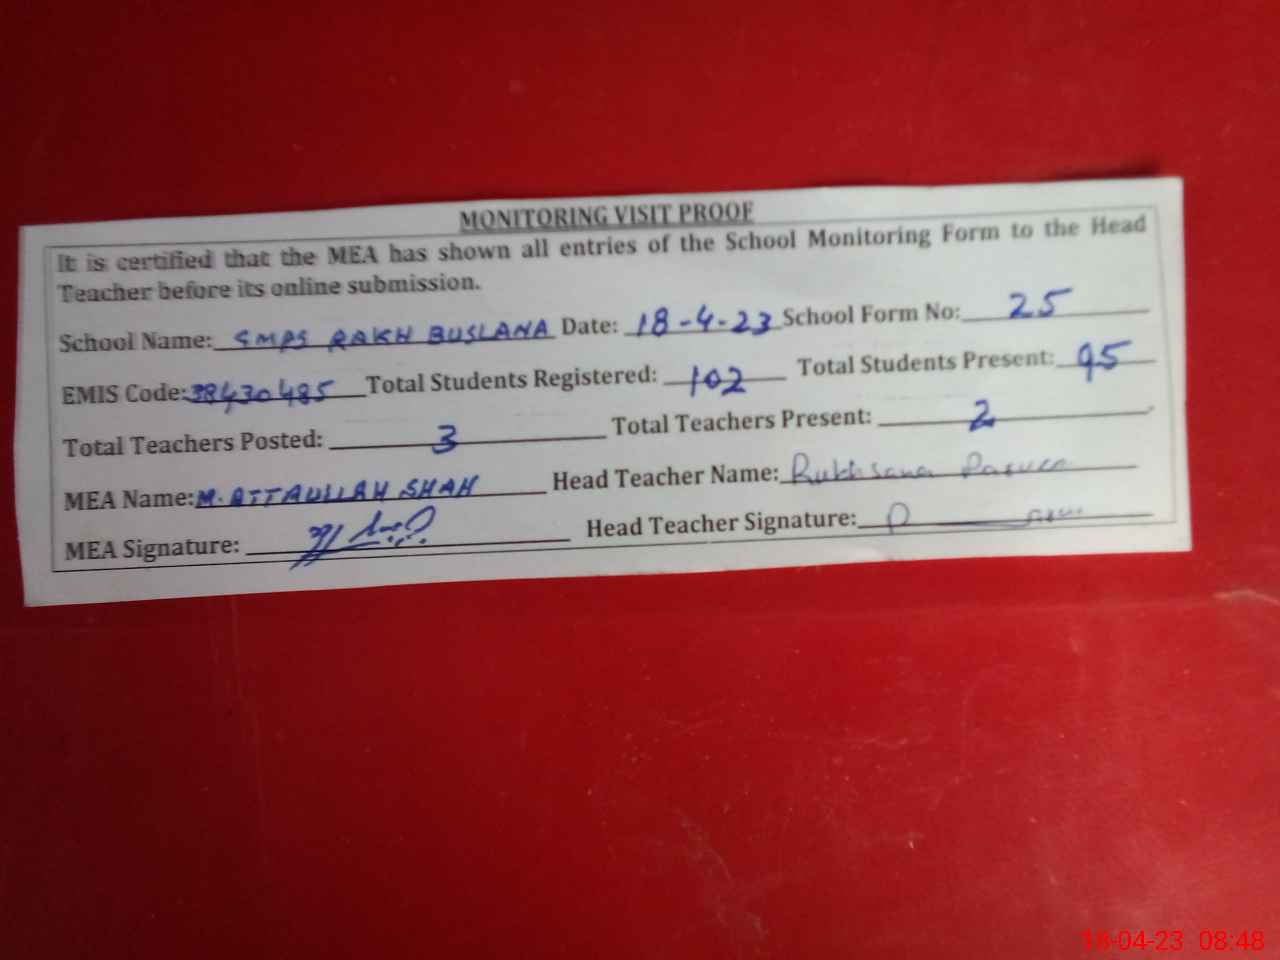 MONITORING VISIT PROOF
It is certified that the MEA has shown all entries of the School Monitoring Form to the Head
Teacher before its online submission.
School Name: GMPS RAKH BUSLANA Date: 18-4-23 School Form No: 25
EMIS Code: 38430485 Total Students Registered: 102 Total Students Present: 95
Total Teachers Posted: 3 Total Teachers Present: 2
MEA Name: M. ATTAULLAH SHAH Head Teacher Name: Rukhsana
MEA Signature: Head Teacher Signature:
18-04-23 08:48